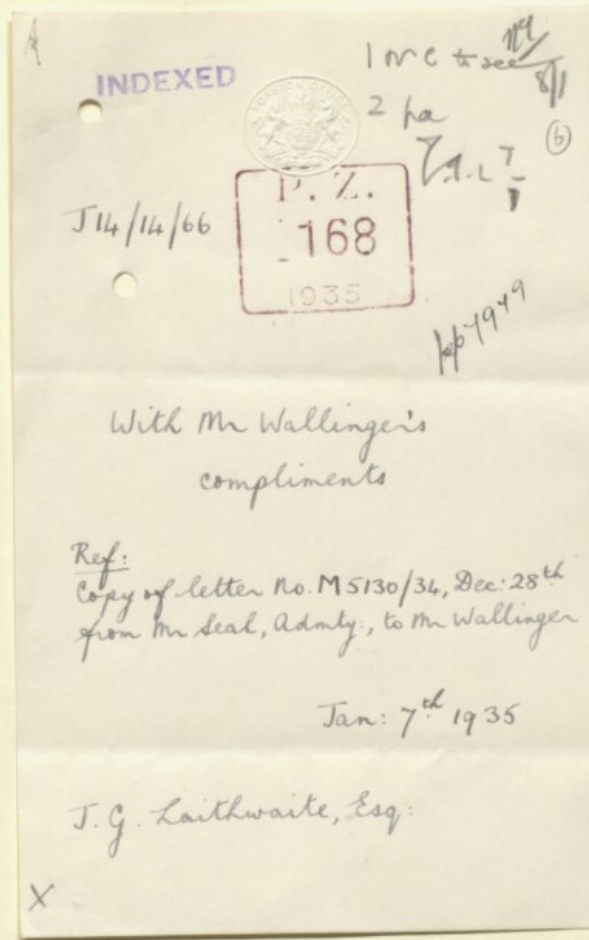 INDEXED
1 mc to see
8/1
2 pa
6
FOREIGN OFFICE
J14/14/66
P. Z.
168
1935
7979
With Mr Wallinger's
compliments
Ref:
Copy of letter No. M5130/34, Dec: 28th
from Mr Seal, Admty:, to Mr Wallinger
Jan: 7th 1935
J. G. Laithwaite, Esq:
X